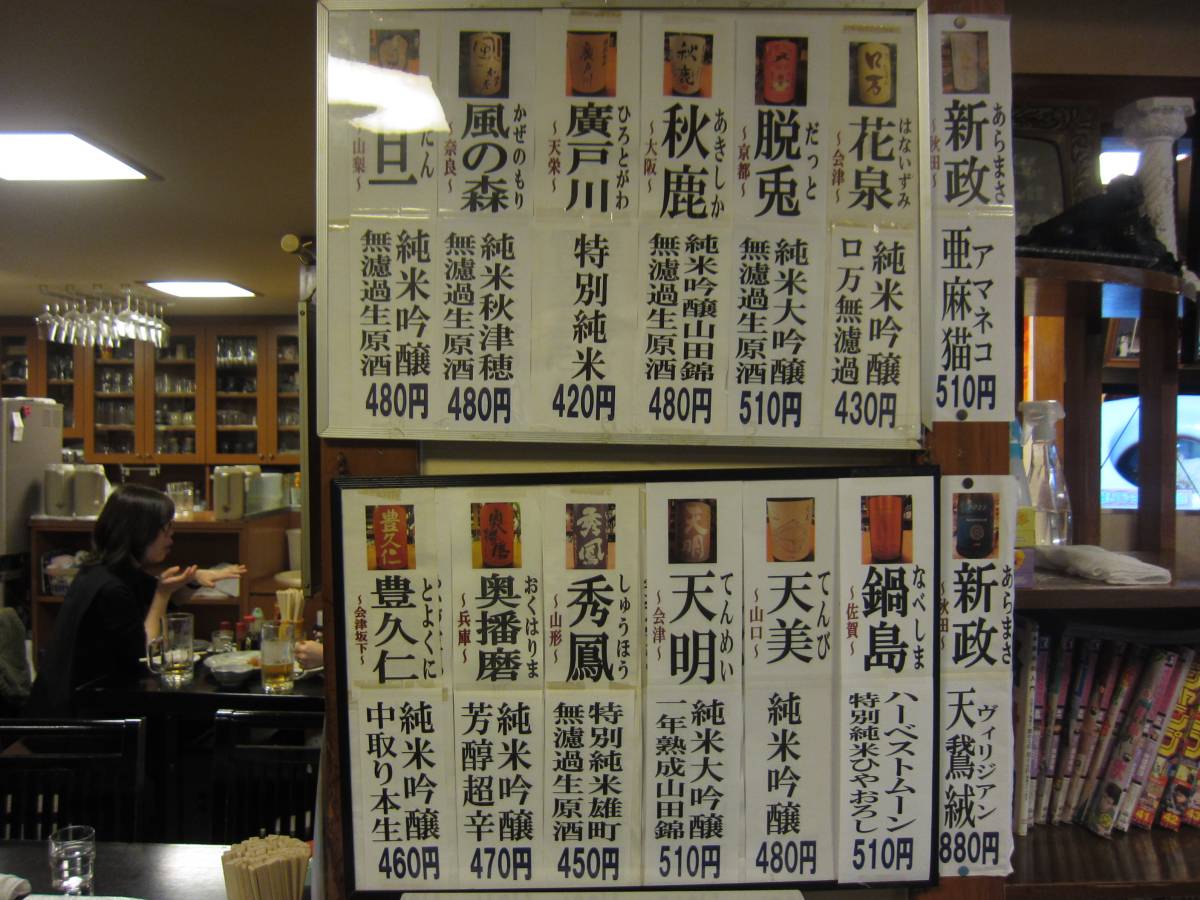 新政
あらまさ
～秋田～
亜麻猫
アマネコ
510円
口万
花泉
はないずみ
～会津～
純米吟醸
口万無濾過
430円
脱兎
だっと
～京都～
純米大吟醸
無濾過生原酒
510円
秋鹿
秋鹿
あきしか
～大阪～
純米吟醸山田錦
無濾過生原酒
480円
廣戸川
廣戸川
ひろとがわ
～天栄～
特別純米
420円
風の森
かぜのもり
～奈良～
純米秋津穂
無濾過生原酒
480円
～山梨～
純米吟醸
無濾過生原酒
480円
新政
あらまさ
～秋田～
天鵞絨
ヴィリジアン
880円
鍋島
なべしま
～佐賀～
ハーベストムーン
特別純米ひやおろし
510円
天美
てんび
～山口～
純米吟醸
480円
天明
天明
てんめい
～会津～
純米大吟醸
一年熟成山田錦
510円
秀鳳
秀鳳
しゅうほう
～山形～
特別純米雄町
無濾過生原酒
450円
奥播磨
奥播磨
おくはりま
～兵庫～
純米吟醸
芳醇超辛
470円
豊久仁
豊久仁
とよくに
～会津坂下～
純米吟醸
中取り本生
460円